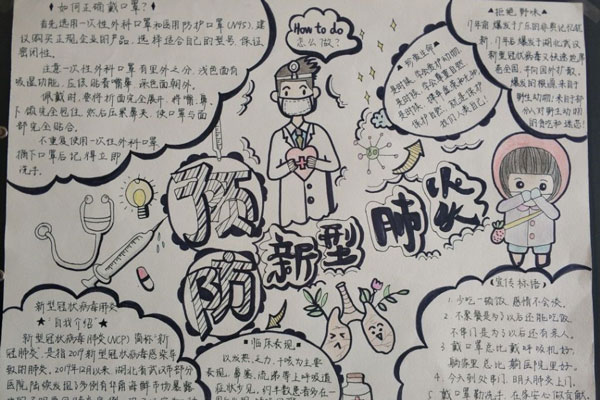 如何正确戴口罩?
首先选用一次性外科口罩和医用防护口罩(N95),建
议购买正规企业的产品,选择适合自己的型号,保证
密闭性。
注意一次性外科口罩有里外之分,浅色面有
吸湿功能,应该贴着嘴鼻,深色面朝外。
佩戴时,要将折面完全展开,将嘴、鼻、
下颌完全包住,然后压紧鼻夹,使口罩与面
部完全贴合。
不重复使用一次性外科口罩
摘下口罩后记得立即
洗手
How to do
怎么做?
拒绝野味
17年前爆发于广东的非典记忆犹
新,17年后爆发于湖北武汉
新型冠状病毒又快速地席
卷全国,并向国外扩散,
爆发的根源来自于
野生动物,来自于部
分人对野生动物
的贪吃和迷恋!
预防
新型肺炎
新型冠状病毒肺炎
自我介绍
新型冠状病毒肺炎(NCP)简称"新
冠肺炎",是指2019新型冠状病毒感染导
致的肺炎。2019年12月以来,湖北省武汉市部分
医院陆续发现了多例有华南海鲜市场暴露
临床表现
以发热、乏力、干咳为主要
表现。鼻塞、流涕等上呼吸道
症状少见,约半数患者多在一
宣传标语
1. 少吃一顿饭,感情不会淡。
2. 不聚餐是为了以后还能吃饭,
不串门是为了以后还有亲人。
3. 戴口罩总比戴呼吸机好,
躺家里总比躺医院里好。
4. 今天到处串门,明天肺炎上门。